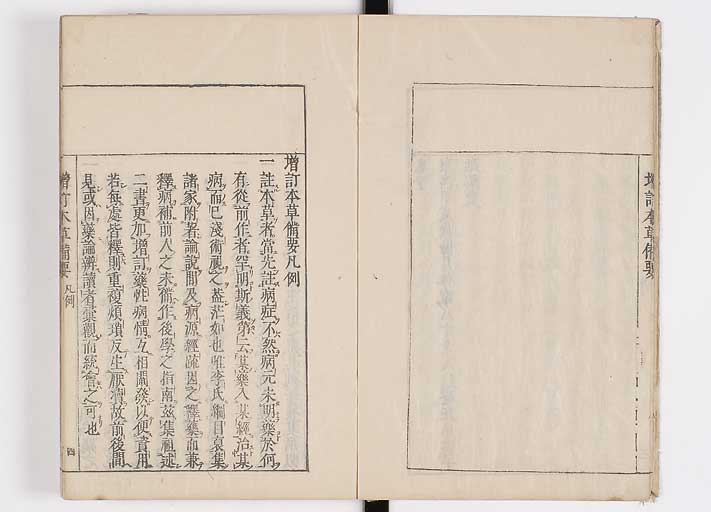 增訂本草備要
增訂本草備要凡例
一註本草者當先註病症不然病元未明藥於何
有從前作者罕明斯義第云某藥入某經治某
病而已淺術視之蓋茫如也唯李氏綱目裒集
諸家附著論說間及病源經疏因之釋藥而兼
釋病補前人之未備作後學之指南茲集祖述
二書更加增訂藥性病情互相闡發以便資用
若每處皆釋則重複煩瑣反生厭瀆故前後間
見或因藥論辨讀者彙觀而統會之可也
增訂本草備要 凡例 四